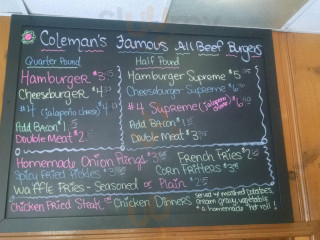 Coleman's Famous All Beef Burgers
Quarter Pound
Hamburger $3
Cheeseburger $4
#4 (jalapeño cheese) $4
Add Bacon $1
Double Meat $2
Half Pound
Hamburger Supreme $5
Cheeseburger Supreme $6
#4 Supreme (jalapeño cheese) $6
Add Bacon $1
Double Meat $3
Homemade Onion Rings $3
French Fries $2
Spicy Fried Pickles $3
Corn Fritters $3
Waffle Fries - Seasoned or Plain $2
Chicken Fried Steak or Chicken Dinners
served w/ mashed potatoes,
cream gravy, vegetable
& a homemade hot roll!